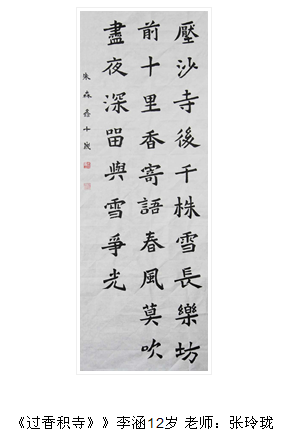 壓沙寺後千株雪長樂坊
前十里香寄語春風莫吹
盡夜深留與雪爭光
朱森十歲
《过香积寺》》李涵12岁 老师：张玲珑